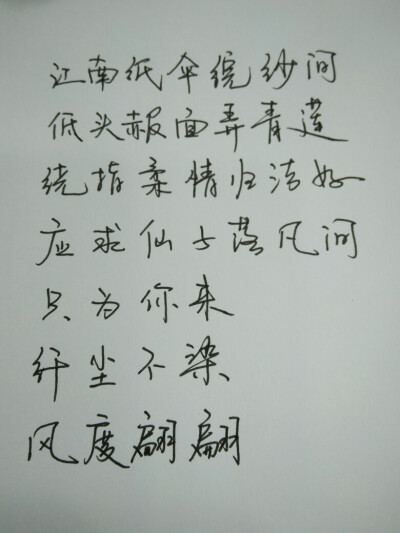 江南纸伞绕纱间
低头赧面弄青莲
绕指柔情归洁好
应求仙士落凡间
只为你来
纤尘不染
风度翩翩